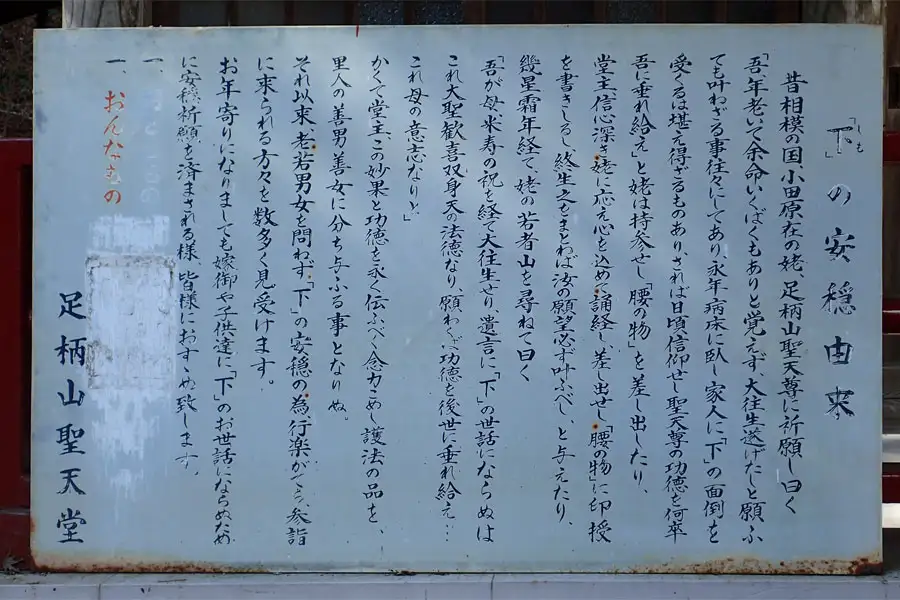 「下」の安穏由来
しも
昔相模の国小田原在の姥、足柄山聖天尊に祈願し曰く
「吾、年老いて余命いくばくもありと覚えず、大往生遂げたしと願ふ
ても叶わざる事往々にしてあり、永年病床に臥し家人に「下」の面倒を
受くるは堪え得ざるものあり、されば日頃信仰せし聖天尊の功徳を何卒
吾に垂れ給え」と姥は持参せし「腰の物」を差し出したり、
堂主、信心深き姥に応え心を込めて誦経し、差し出せし「腰の物」に印授
を書きしるし、終生之をまとわば汝の願望必ず叶ふべし、と与えたり、
幾星霜年経て、姥の若者山を尋ねて曰く
「吾が母、米寿の祝を経て大往生せり、遺言に「下」の世話にならぬは
これ大聖歓喜双身天の法徳なり、願わくば功徳を後世に垂れ給え…
これ母の意志なりと」
かくて堂主、この妙果と功徳を永く伝ふべく念力こめし護法の品を、
里人の善男善女に分ち与ふる事となりぬ。
それ以来、老若男女を問わず、「下」の安穏の為、行楽がてら、参詣
に来られる方々を数多く見受けます。
お年寄りになりましても嫁御や子供達に「下」のお世話にならぬため
に安穏祈願を済まされる様、皆様におすゝめ致します。
一、
一、おんなもの
足柄山聖天堂